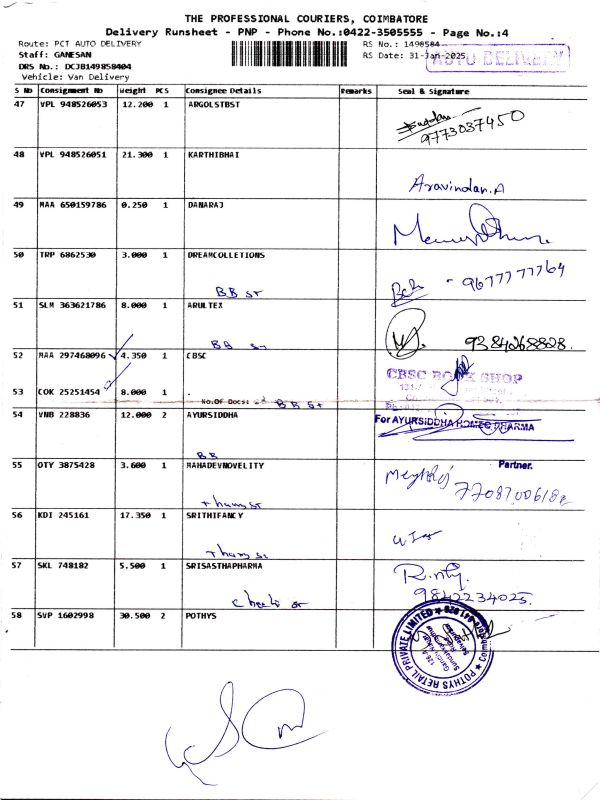 THE PROFESSIONAL COURIERS, COIMBATORE
Delivery Runsheet - PNP - Phone No.:0422-3505555 - Page No.:4
Route: PCT AUTO DELIVERY
RS No.: 1490504
Staff: GANESAN
RS Date: 31-Jan-2025
AUTO DELIVERY
DRS No.: DCJB149858404
Vehicle: Van Delivery
S No Consignment No Weight PCS Consignee Details Remarks Seal & Signature
47 VPL 948526053 12.200 1 ARGOLSTBST
9773037450
48 VPL 948526051 21.300 1 KARTHIBHAI
Aravindan.A
49 MAA 650159786 0.250 1 DANARAJ
50 TRP 6862530 3.000 1 DREAMCOLLETIONS
BB st
9677777764
51 SLM 363621786 8.000 1 ARULTEX
BB
9384268828.
52 MAA 297468096 4.350 1 CBSC
CBSC BOOK SHOP
53 COK 25251454 8.000 1
No.Of Docs:
BB St
54 VNB 228836 12.000 2 AYURSIDDHA
For AYURSIDDHA HOMEO PHARMA
BB
Partner.
55 OTY 3875428 3.600 1 MAHADEVNOVELITY
Tham st
56 KDI 245161 17.350 1 SRITHIFANCY
Tham st
57 SKL 748182 5.500 1 SRISASTHAPHARMA
9842234025.
58 SVP 1602998 30.500 2 POTHYS
POTHYS RETAIL PRIVATE LIMITED